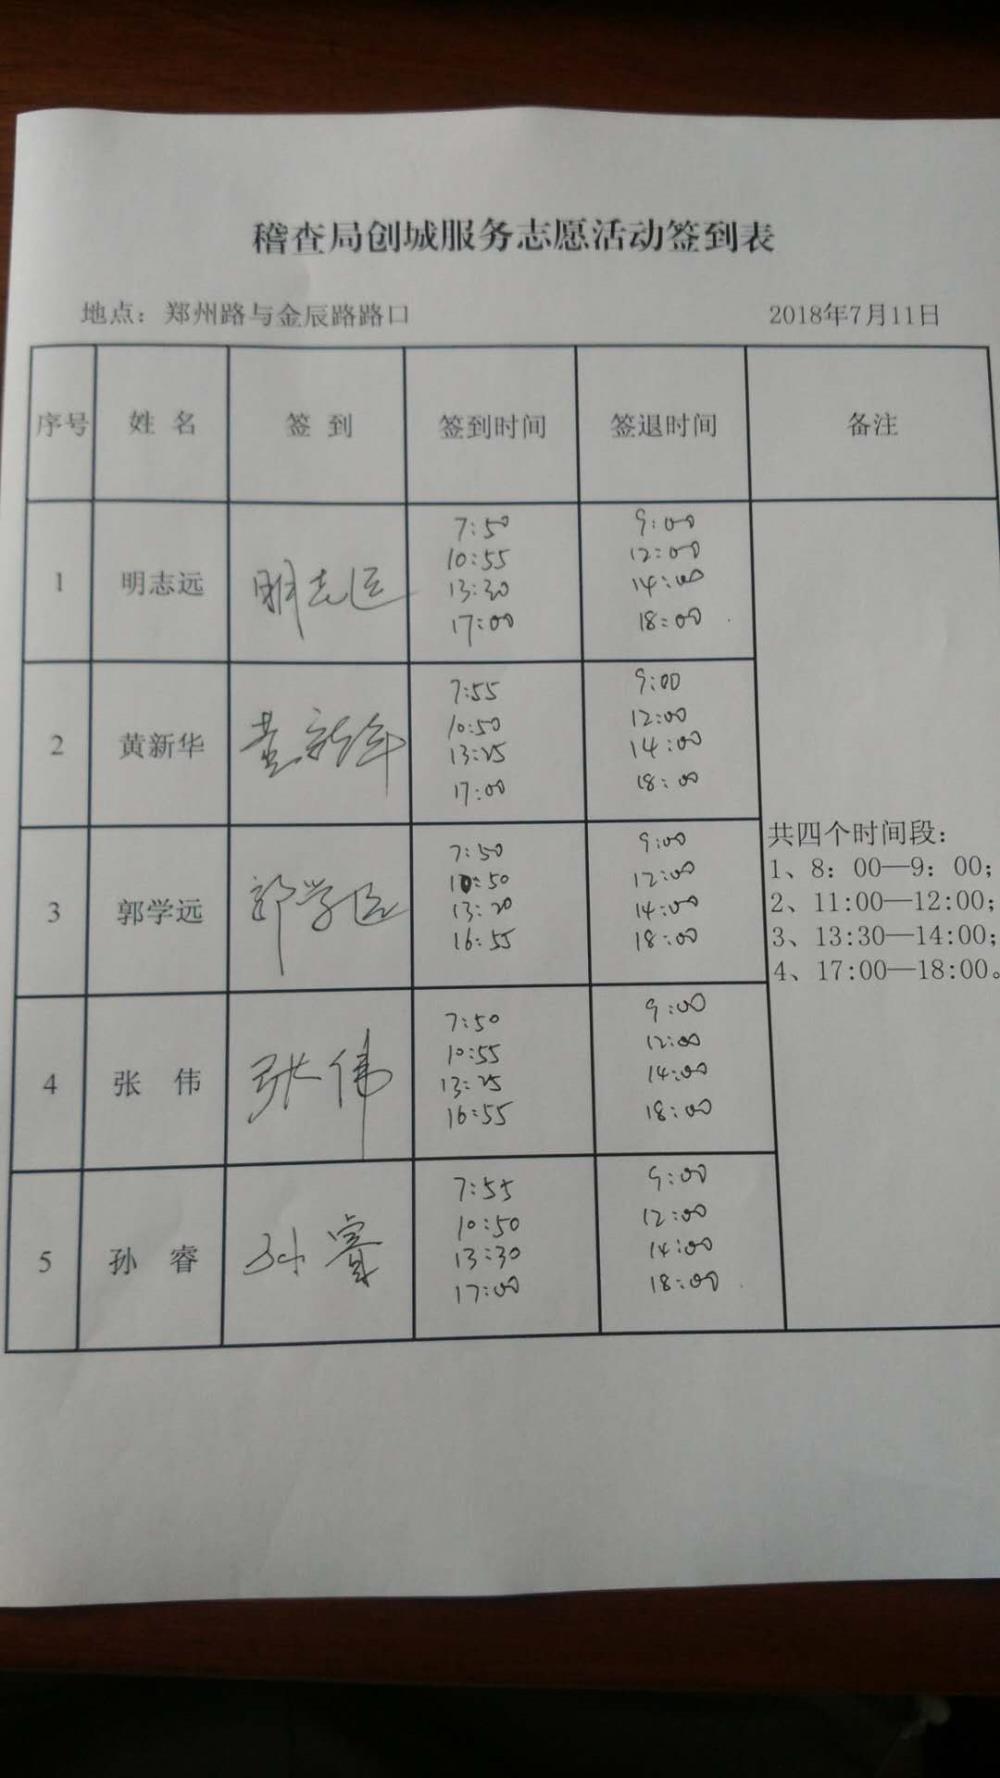 稽查局创城服务志愿活动签到表
地点：郑州路与金辰路路口 2018年7月11日
序号 姓 名 签 到 签到时间 签退时间 备注
1 明志远 明志远
7:50 9:00
10:55 12:00
13:30 14:00
17:00 18:00
2 黄新华 黄新华
7:55 9:00
10:50 12:00
13:25 14:00
17:00 18:00
3 郭学远 郭学远
7:50 9:00
10:50 12:00
13:20 14:00
16:55 18:00
4 张 伟 张伟
7:50 9:00
10:55 12:00
13:25 14:00
16:55 18:00
5 孙 睿 孙睿
7:55 9:00
10:50 12:00
13:30 14:00
17:00 18:00
共四个时间段：
1、8：00—9：00；
2、11:00—12:00；
3、13:30—14:00；
4、17:00—18:00。